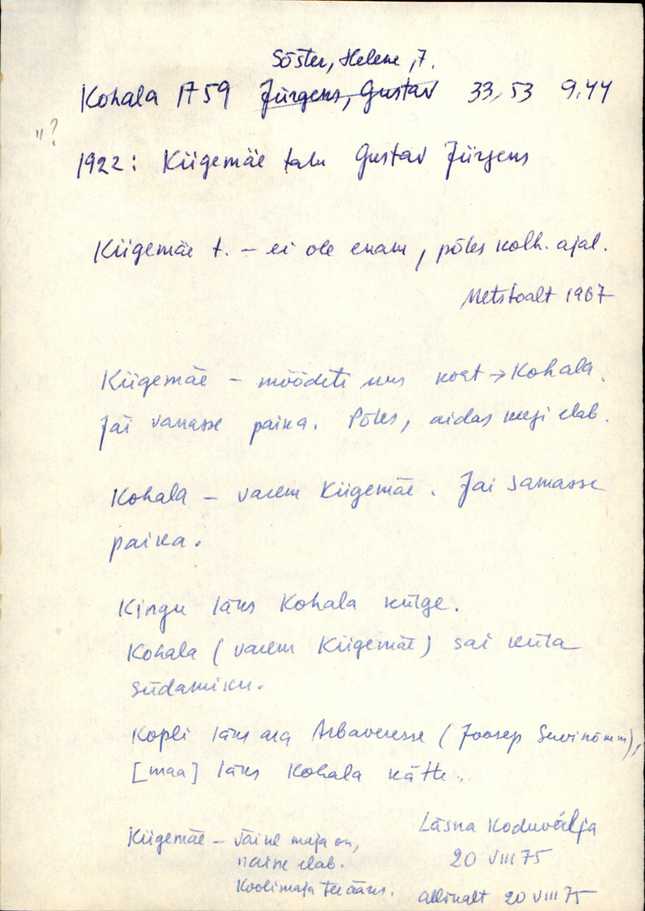 Sõster, Helene, 7.
Kohala 1759 Jürgens, Gustav 33,53 9,44
"?
1922: Kiigemäe talu Gustav Jürgens
Kiigemäe t. – ei ole enam, põles kolh. ajal.
Metstoalt 1967
Kiigemäe – mõõdeti uus koht → Kohala.
Jäi vanasse paika. Põles, aidas keegi elab.
Kohala – varem Kiigemäe. Jäi samasse
paika.
Kingu läks Kohala külge.
Kohala (varem Kiigemäe) sai küla
südamiku.
Kopli läks ära Arbaveresse (Joosep
[maa] läks Kohala kätte.
Kiigemäe – väike maja on,
naine elab.
Koolimaja tee ääres.
Läsna Koduvälja
20 VIII 75
Allinalt 20 VIII 75